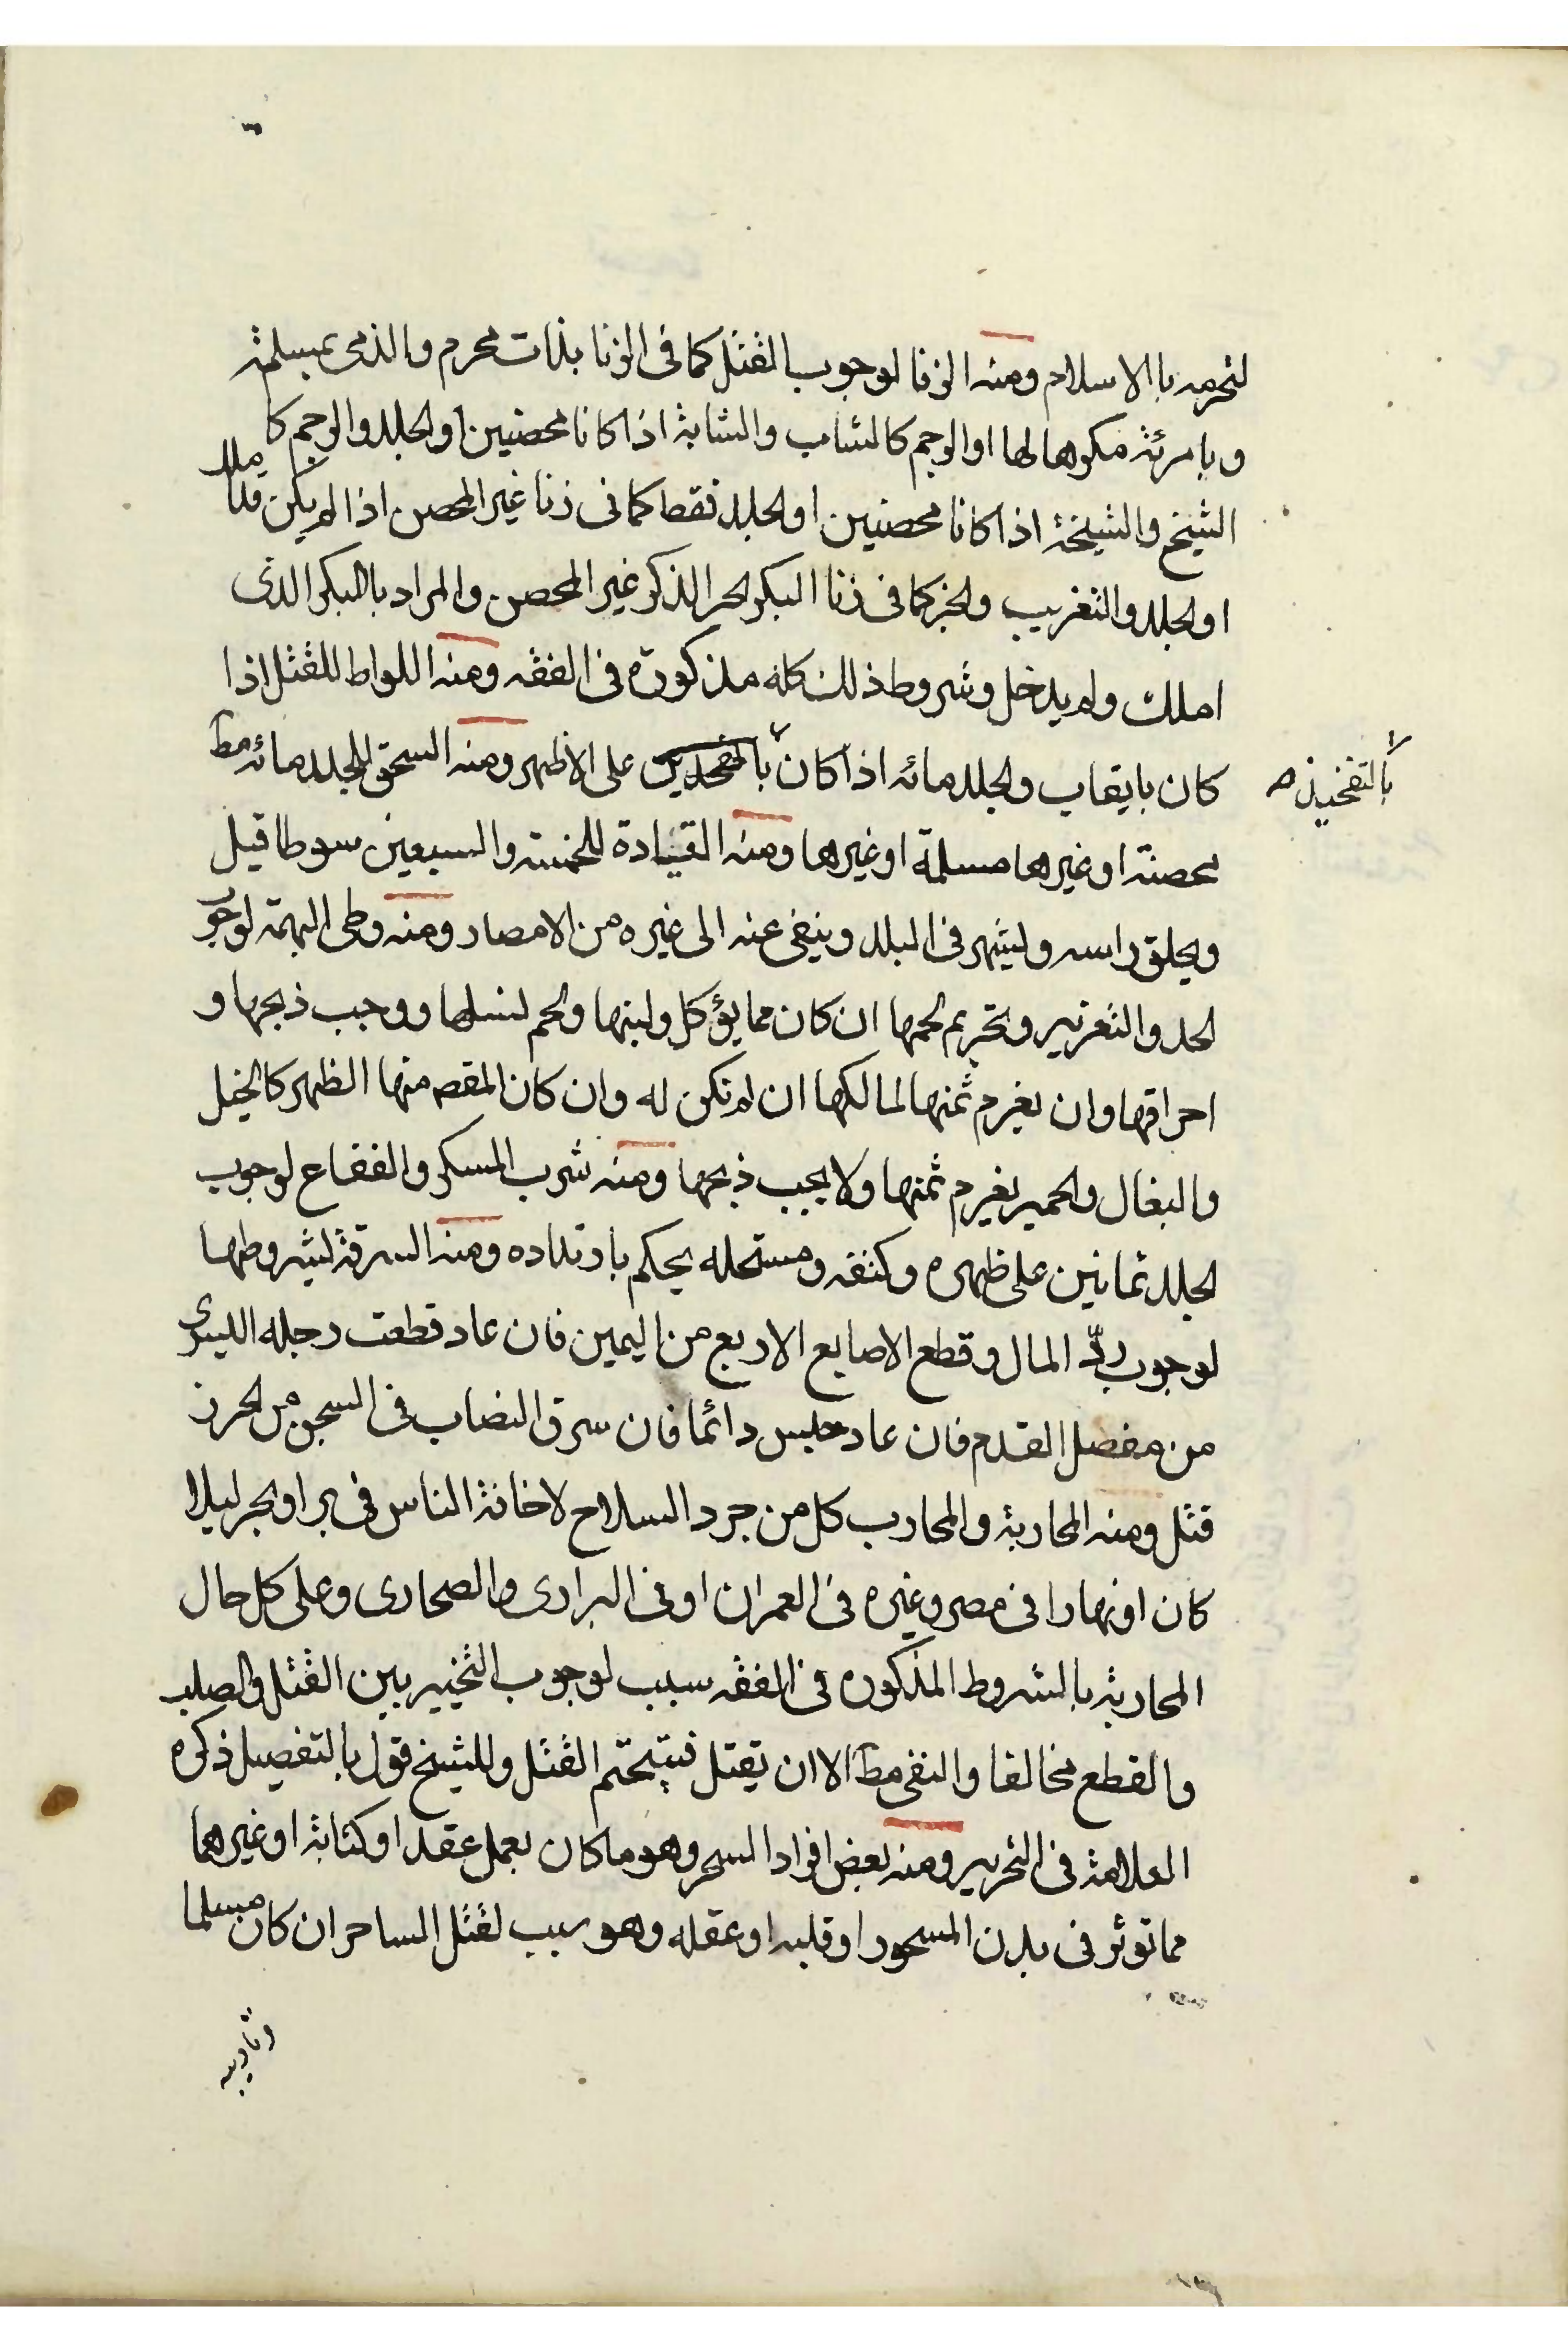 لتحرمه بالاسلام ومنه الزنا لوجوب القتل كما فى الزنا بذات محرم والذمى بمسلمة
و بامرئة مكرها لها او الرجم كالشاب والشابة اذا كانا محصنين او الجلد والرجم كا
الشيخ والشيخة اذا كانا محصنين او الجلد فقط كما فى زنا غير المحصن اذا لم يكن مملك
او الجلد والتغريب والجز كما فى زنا البكر الحر الذكر غير المحصن والمراد بالبكر الذى
املك ولم يدخل وشروط ذلك كله مذكورة فى الفقه ومنه اللواط للقتل اذا
كان بايقاب والجلد مائه اذا كان بالتفخيذ على الاظهر ومنه السحق للجلد مائه مط
محصنة او غيرها مسلمة او غيرها ومنه القيادة للخمسة والسبعين سوطا قيل
ويحلق راسه وليشهر فى البلد وينفى عنه الى غيره من الامصار ومنه وطى البهيمة لوجوب
الحد والتعزير وتحريم لحمها ان كان مما يؤكل ولبنها ولحم لنسلها ووجب ذبحها و
احراقها وان يغرم ثمنها لمالكها ان لم تكن له وان كان المقص منها الظهر كالخيل
والبغال والحمير يغرم ثمنها ولا يجب ذبحها ومنه شرب المسكر والفقاع لوجوب
الجلد ثمانين على ظهره وكتفه ومستحله يحكم بارتداده ومنه السرقة لشروطها
لوجوب ردّ المال وقطع الاصابع الاربع من اليمين فان عاد قطعت رجله اليسرى
من مفصل القدم فان عاد حبس دائما فان سرق النصاب فى السجن من الحرز
قتل ومنه المحاربة والمحارب كل من جرد السلاح لاخافة الناس فى بر او بحر ليلا
كان او نهارا فى مصر وغيره فى العمران او فى البرارى والصحارى وعلى كل حال
المحاربة بالشروط المذكوره فى الفقه سبب لوجوب التخيير بين القتل والصلب
والقطع مخالفا والنفى مط الا ان يقتل فيتحتم القتل وللشيخ قول بالتفصيل ذكره
العلامة فى التحرير ومنه بعض افراد السحر وهو ما كان بعمل عقد او كتابة او غيرهما
مما توثر فى بدن المسحور او قلبه او عقله وهو سبب لقتل الساحر ان كان مسلما
بالتفخيذ صح
وتاديبه